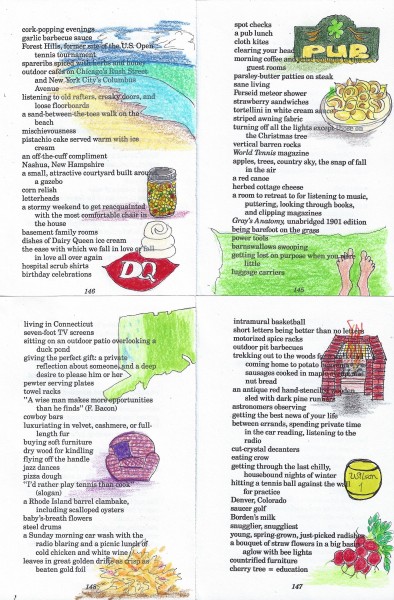 cork-popping evenings
garlic barbecue sauce
Forest Hills, former site of the U.S. Open
tennis tournament
spareribs spiced with herbs and honey
outdoor cafés on Chicago's Rush Street
and New York City's Columbus
Avenue
listening to old rafters, creaky doors, and
loose floorboards
a sand-between-the-toes walk on the
beach
mischievousness
pistachio cake served warm with ice
cream
an off-the-cuff compliment
Nashua, New Hampshire
a small, attractive courtyard built around
a gazebo
corn relish
letterheads
a stormy weekend to get reacquainted
with the most comfortable chair in
the house
basement family rooms
dishes of Dairy Queen ice cream
the ease with which we fall in love or fall
in love all over again
hospital scrub shirts
birthday celebrations
DQ
146
spot checks
a pub lunch
cloth kites
clearing your head
morning coffee and juice brought to the
guest rooms
parsley-butter patties on steak
sane living
Perseid meteor shower
strawberry sandwiches
tortellini in white cream sauce
striped awning fabric
turning off all the lights except those on
the Christmas tree
vertical barren rocks
World Tennis magazine
apples, trees, country sky, the snap of fall
in the air
a red canoe
herbed cottage cheese
a room to retreat to for listening to music,
puttering, looking through books,
and clipping magazines
Gray's Anatomy, unabridged 1901 edition
being barefoot on the grass
power tools
barnswallows swooping
getting lost on purpose when you were
little
luggage carriers
PUB
145
living in Connecticut
seven-foot TV screens
sitting on an outdoor patio overlooking a
duck pond
giving the perfect gift: a private
reflection about someone and a deep
desire to please him or her
pewter serving plates
towel racks
"A wise man makes more opportunities
than he finds" (F. Bacon)
cowboy bars
luxuriating in velvet, cashmere, or full-
length fur
buying soft furniture
dry wood for kindling
flying off the handle
jazz dances
pizza dough
"I'd rather play tennis than cook"
(slogan)
a Rhode Island barrel clambake,
including scalloped oysters
baby's-breath flowers
steel drums
a Sunday morning car wash with the
radio blaring and a picnic lunch of
cold chicken and white wine
leaves in great golden drifts as crisp as
beaten gold foil
148
intramural basketball
short letters being better than no letters
motorized spice racks
outdoor pit barbecues
trekking out to the woods for
coming home to potato
sausages cooked in maple
nut bread
an antique red hand-stenciled wooden
sled with dark pine runners
astronomers observing
getting the best news of your life
between errands, spending private time
in the car reading, listening to the
radio
cut-crystal decanters
eating crow
getting through the last chilly,
housebound nights of winter
hitting a tennis ball against the wall
for practice
Denver, Colorado
saucer golf
Borden's milk
snugglier, snuggliest
young, spring-grown, just-picked radishes
a bouquet of straw flowers in a big basket
aglow with bee lights
countrified furniture
cherry tree = education
Wilson
1
147